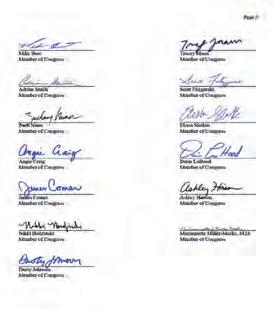 Page
Mike Bost
Member of Congress
Tracey Mann
Member of Congress
Adrian Smith
Member of Congress
Scott Fitzgerald
Member of Congress
Zachary Nunn
Zach Nunn
Member of Congress
Elissa Slotkin
Member of Congress
Angie Craig
Angie Craig
Member of Congress
Darin LaHood
Darin LaHood
Member of Congress
James Comer
James Comer
Member of Congress
Ashley Hinson
Ashley Hinson
Member of Congress
Nikki Budzinski
Nikki Budzinski
Member of Congress
Mariannette Miller-Meeks, M.D.
Member of Congress
Dusty Johnson
Dusty Johnson
Member of Congress